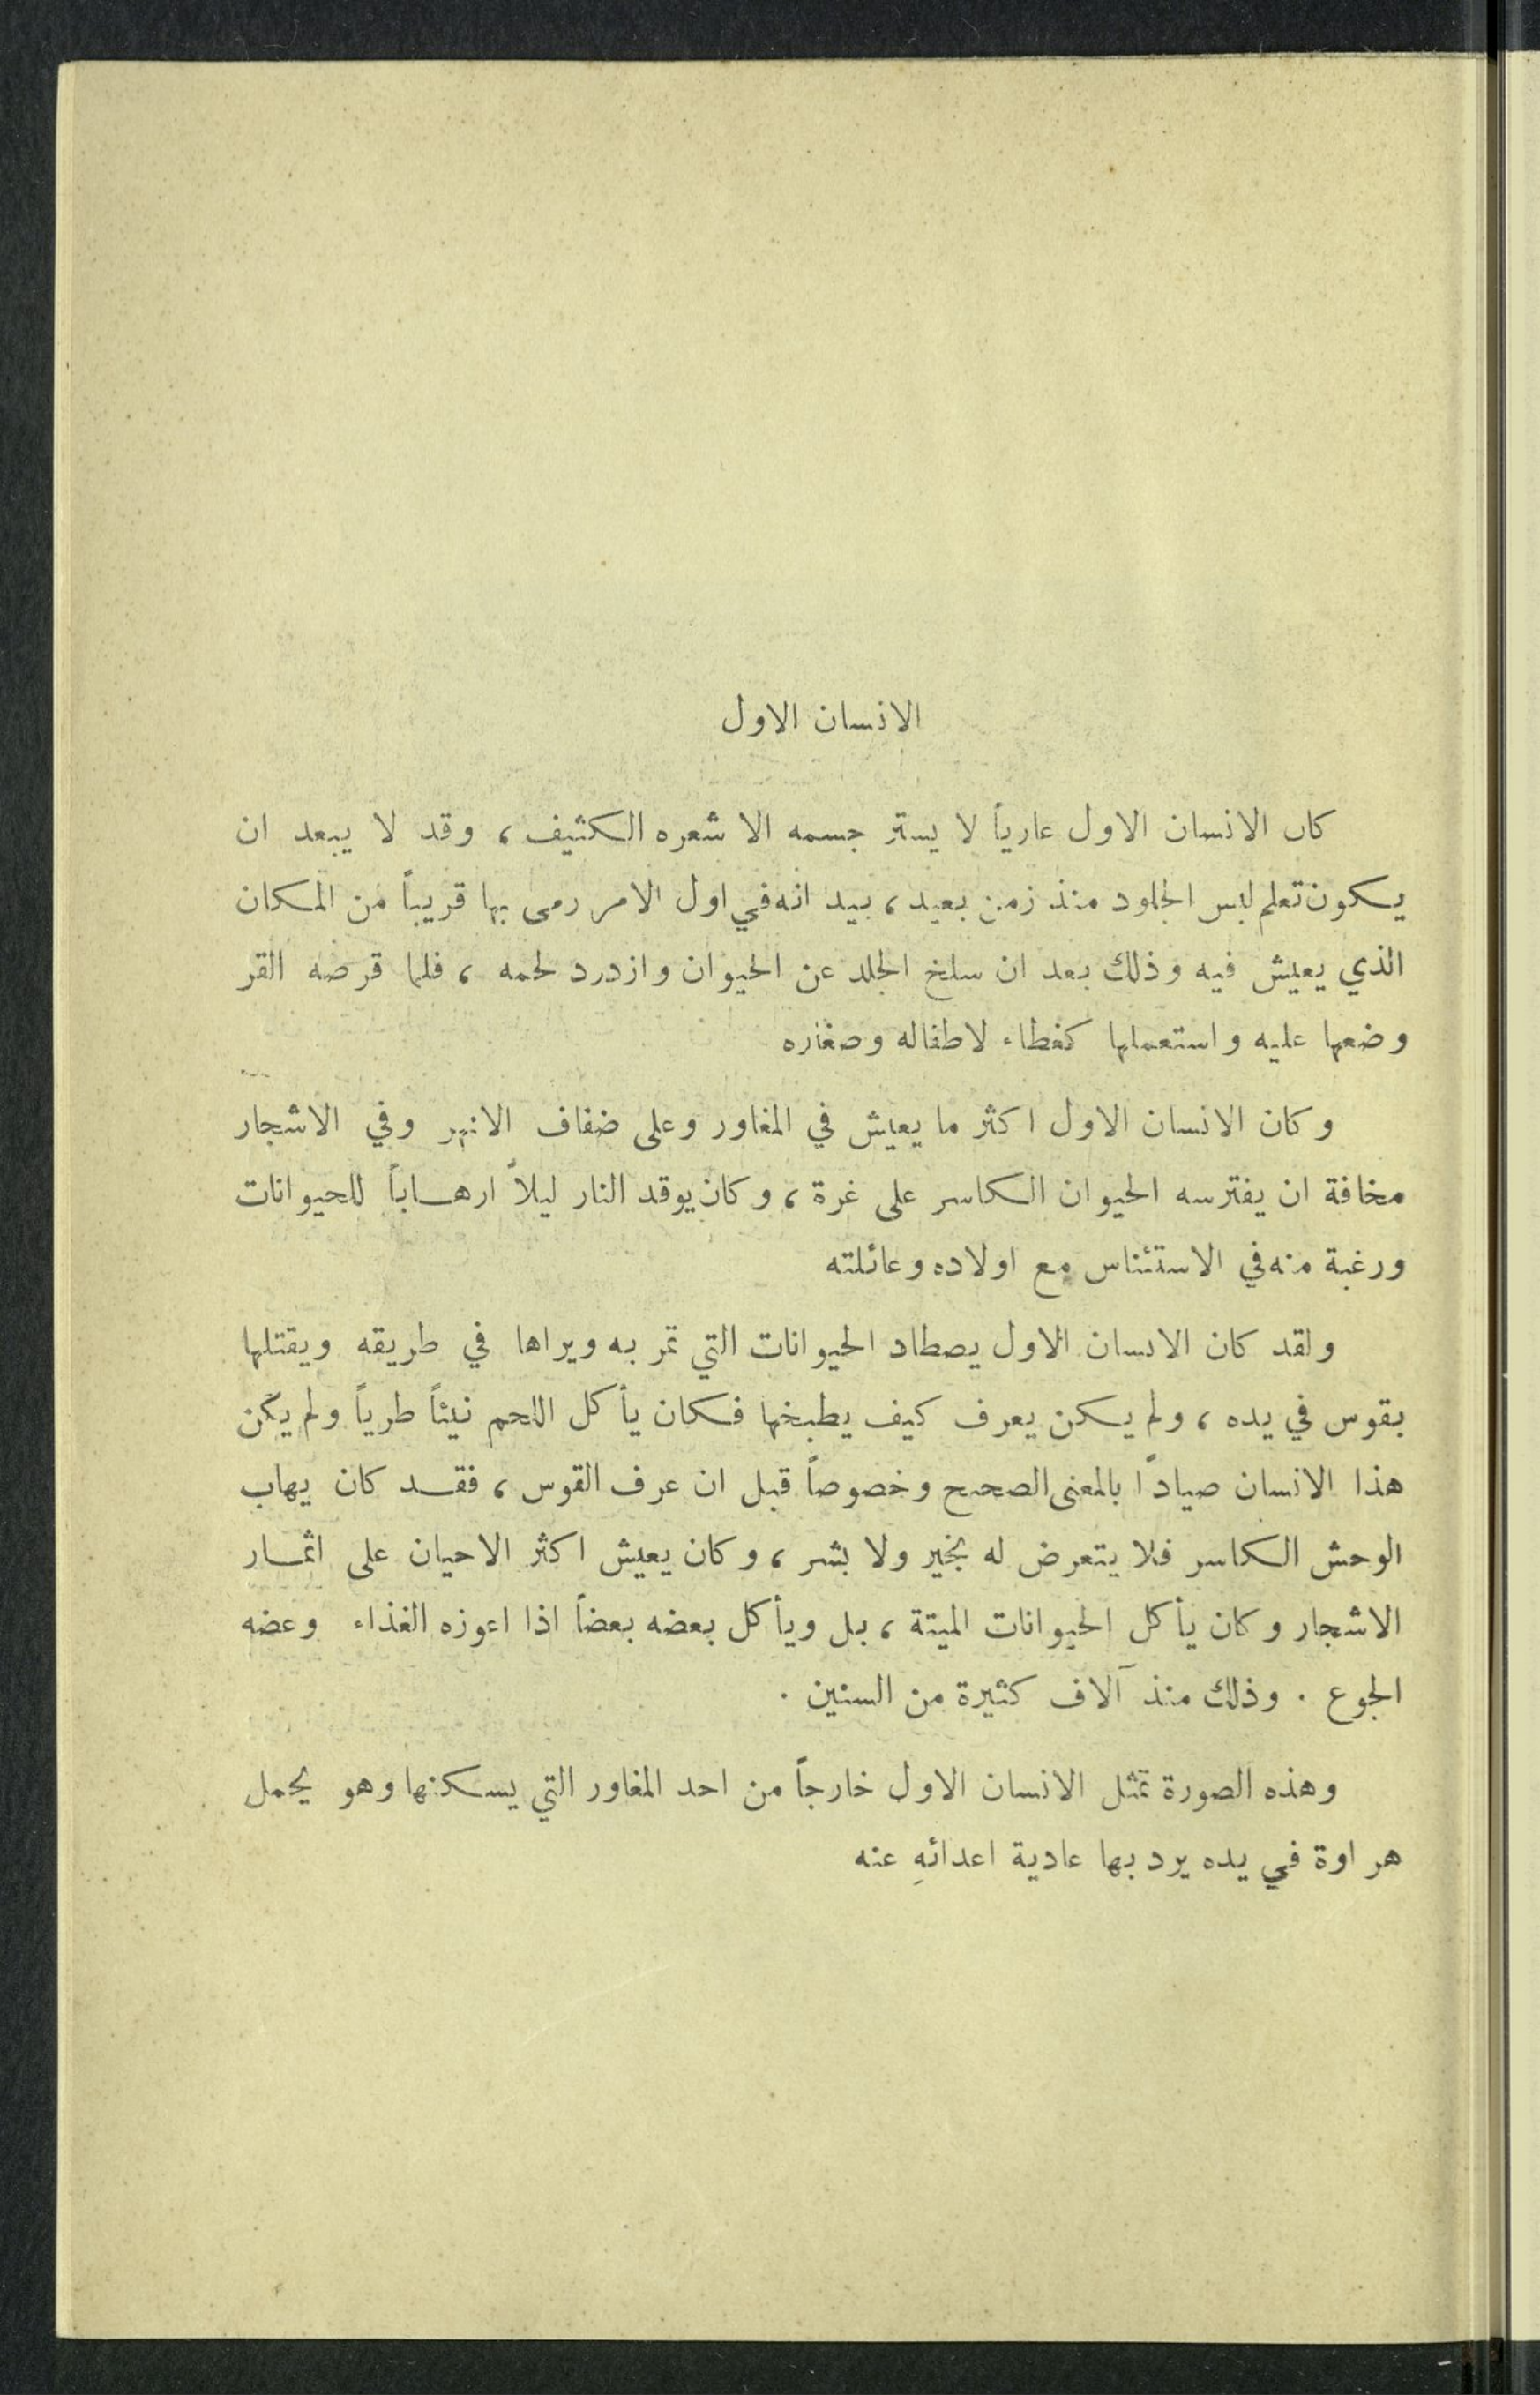 الانسان الاول
كان الانسان الاول عارياً لا يستر جسمه الا شعره الكثيف، وقد لا يبعد ان
يكون تعلم لبس الجلود منذ زمن بعيد، بيد انه في اول الامر رمى بها قريباً من المكان
الذي يعيش فيه وذلك بعد ان سلخ الجلد عن الحيوان وازدرد لحمه، فلما قرصه القر
وضعها عليه واستعملها كغطاء لاطفاله وصغاره
وكان الانسان الاول اكثر ما يعيش في المغاور وعلى ضفاف الانهر وفي الاشجار
مخافة ان يفترسه الحيوان الكاسر على غرة، وكان يوقد النار ليلاً ارهاباً للحيوانات
ورغبة منه في الاستئناس مع اولاده وعائلته
ولقد كان الانسان الاول يصطاد الحيوانات التي تمر به ويراها في طريقه ويقتلها
بقوس في يده، ولم يكن يعرف كيف يطبخها فكان يأكل اللحم نيئاً طرياً ولم يكن
هذا الانسان صياداً بالمعنى الصحيح وخصوصاً قبل ان عرف القوس، فقد كان يهاب
الوحش الكاسر فلا يتعرض له بخير ولا بشر، وكان يعيش اكثر الاحيان على اثمار
الاشجار وكان يأكل الحيوانات الميتة، بل ويأكل بعضه بعضاً اذا اعوزه الغذاء وعضه
الجوع . وذلك منذ آلاف كثيرة من السنين .
وهذه الصورة تمثل الانسان الاول خارجاً من احد المغاور التي يسكنها وهو يحمل
هراوة في يده يرد بها عادية اعدائهِ عنه